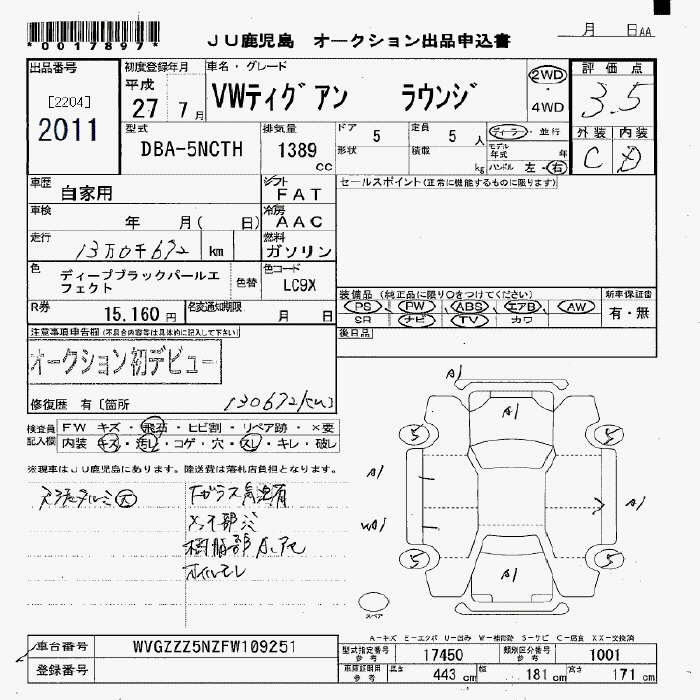 *0017897*
JU鹿児島 オークション出品申込書
月 日AA
出品番号
[2204]
2011
初度登録年月
平成
27 7月
車名・グレード
VWティグアン ラウンジ
2WD
・
4WD
評価点
3.5
型式
DBA-5NCTH
排気量
1389
cc
ドア 5
定員 5 人
形状
積載 kg
ディーラ・並行
モデル年式 年
ハンドル 左・右
外装 内装
C D
車歴
自家用
シフト
FAT
セールスポイント(正常に機能するものに限ります)
車検
年 月( 日)
冷房
AAC
走行
13万0千672 km
燃料
ガソリン
色
ディープブラックパールエフェクト
色替
色コード
LC9X
R券
15.160円
名変通知期限
月 日
装備品(純正品に限り○をつけてください)
PS・PW・ABS・エアB・AW
SR ナビ・TV・カワ
新車保証書
有・無
後日品
注意事項申告欄(不具合内容等は具体的に記入して下さい)
オークション初デビュー
修復歴 有〔箇所
130672(km)
検査員記入欄
FW キズ・飛石・ヒビ割・リペア跡・×要
内装 キズ・汚レ・コゲ・穴・スレ・キレ・破レ
※現車はJU鹿児島にあります。陸送費は落札店負担となります。
オイルモレ
A1
A1
5
5
A1
A1
WA1
5
5
A1
スペア
A-キズ E-エクボ U-凹み W-補修跡 S-サビ C-腐食 XX-交換済
車台番号
WVGZZZ5NZFW109251
登録番号
型式指定番号 参考 17450
類別区分番号 参考 1001
車庫証明用 参考 長さ 443 cm 幅 181 cm 高さ 171 cm